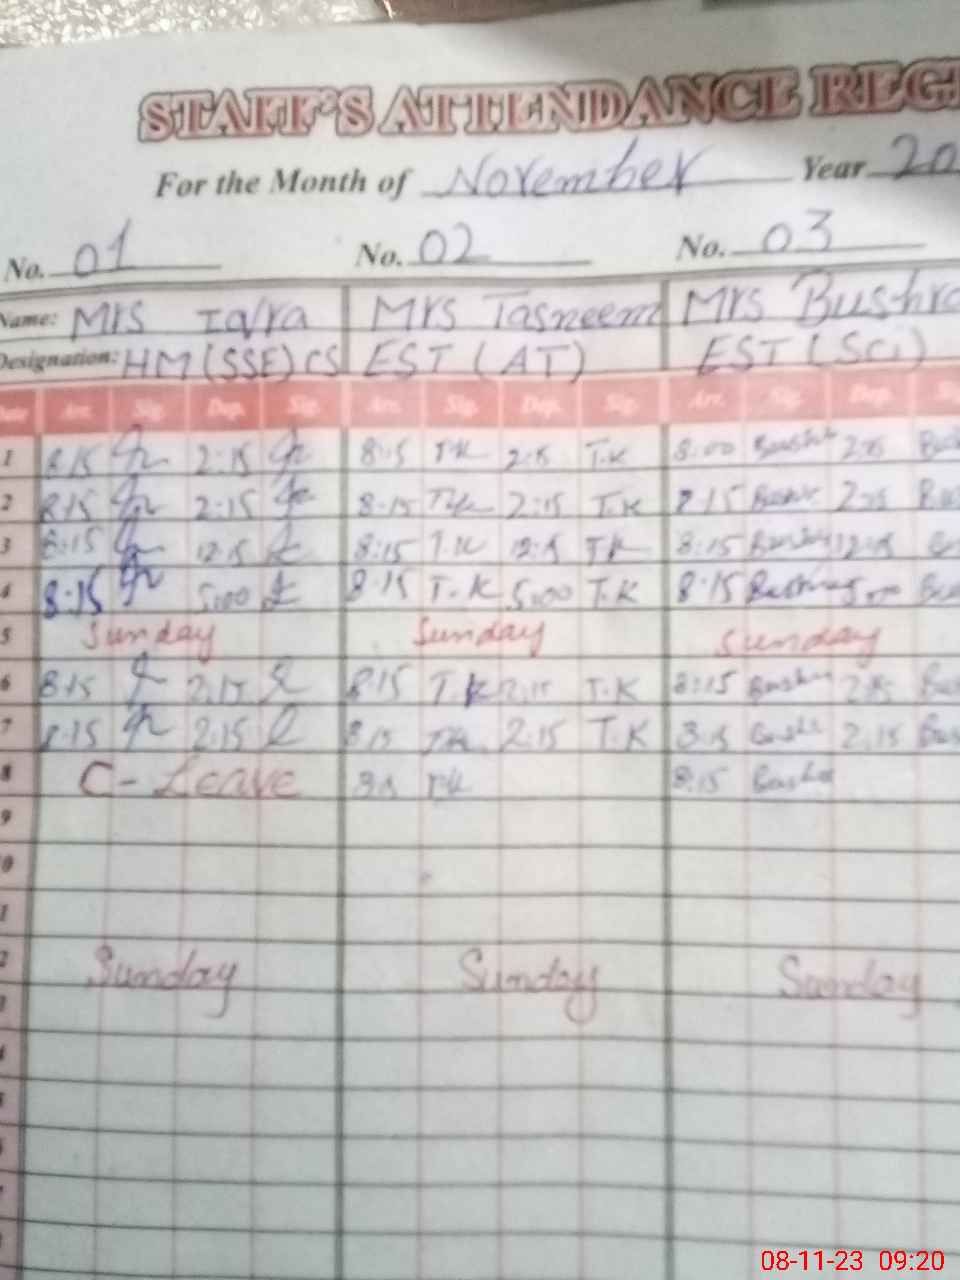 STAFF'S ATTENDANCE REGI
For the Month of November Year 20
No. 01 No. 02 No. 03
Name: Mrs Iqra Mrs Tasneem Mrs Bushra
Designation: HM (SSE) CS EST (AT) EST (Sci)
Arr. Sig. Dep. Sig. Arr. Sig. Dep. Sig. Arr. Sig. Dep.
1 8.15 2:15 8:15 T.K 2:15 T.K 8:00 Bushra 2:15
2 8:15 2:15 8:15 T.K 2:15 T.K 8:15 Bushra 2:15
3 8:15 12:15 8:15 T.K 12:15 T.K 8:15 Bushra 12:15
4 8:15 5:00 8:15 T.K 5:00 T.K 8:15 Bushra 5:00
5 Sunday Sunday Sunday
6 8:15 2:15 8:15 T.K 2:15 T.K 8:15 Bushra 2:15
7 8:15 2:15 8:15 T.K 2:15 T.K 8:15 2:15
8 C-Leave T.K 8:15 Bushra
9
0
1
2 Sunday Sunday Sunday
08-11-23 09:20